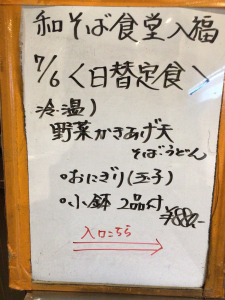 和そば食堂入福
7/6〈日替定食〉
冷・温)
野菜かきあげ天
そば・うどん
・おにぎり(玉子)
・小鉢2品付
¥880,-
入口こちら